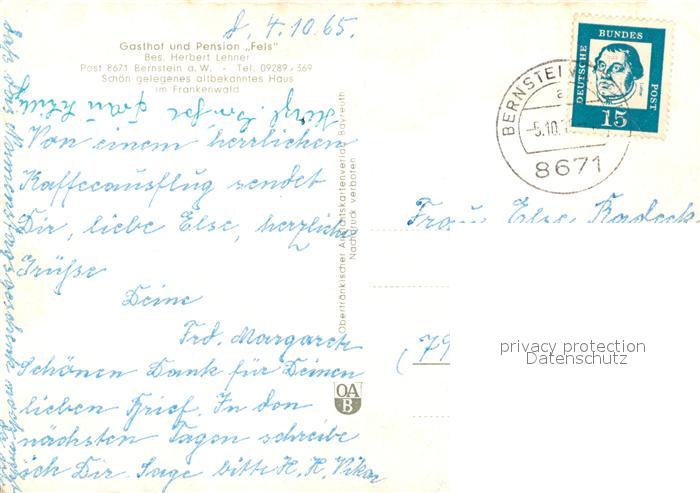 S, 4.10.65.
Gasthof und Pension „Fels"
Bes. Herbert Lehner
Post 8671 Bernstein a. W. - Tel. 09289 - 369
Schön gelegenes altbekanntes Haus
im Frankenwald
Von einem herrlichen
Kaffeeausflug sendet
Dir, liebe Else, herzliche
Grüße
Deine
Frd. Margarete
Schönen Dank für Deinen
lieben Brief. In den
nächsten Tagen schreibe
ich Dir. Sage bitte H. H. Vikar
Oberfränkischer Ansichtskartenverlag Bayreuth
Nachdruck verboten
OA
B
DEUTSCHE BUNDES POST
15
BERNSTEIN
-5.10.
8671
Frau Else Radeck
(79
privacy protection
Datenschutz